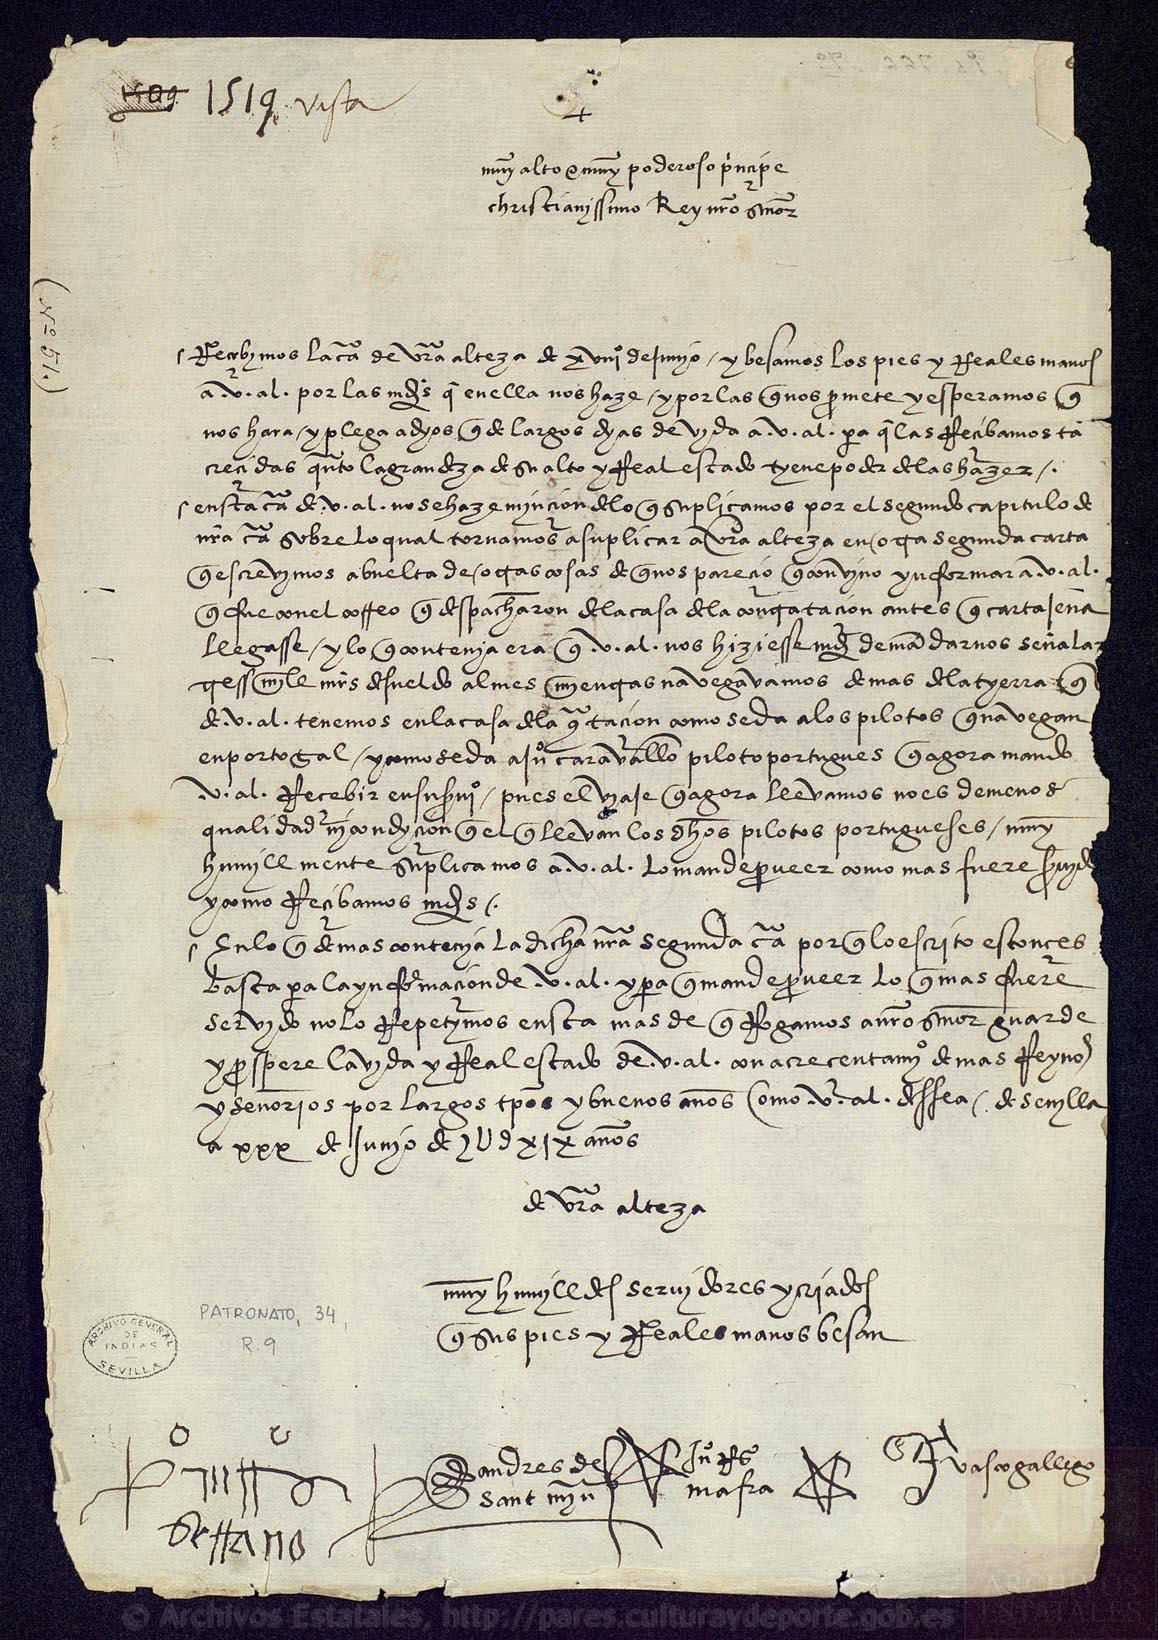 1519 vista
muy alto e muy poderoso prncipe
christianissimo Rey nro señor
(Nº 51.)
Recebymos la cra de vra alteza de xviiiº de junyo / y besamos los pies y Reales manos
a .v. al. por las mds q en ella nos haze / y por las q nos pmete y esperamos q
nos hara / y plega a dyos q de largos dyas de vyda a .v. al. pa q las Recibamos ta
crecidas quto la grandeza de su alto y Real estado tyene poder de las hazer /.
en sta cra de .v. al. no se haze mjncion de lo q suplicamos por el segundo capitulo de
nra cra sobre lo qual tornamos a suplicar a vra alteza en otra segunda carta
q escrevymos a buelta de otras cosas de q nos parecio q convino ynformar a .v. al.
q fue con el correo q despacharon de la casa de la contratacion antes q cartajena
llegasse / y lo q contenja era q .v. al. nos hiziesse md de mandarnos señalar
tress myle mrs de sueldo al mes myentras navegavamos demas de la tyerra q
de .v. al. tenemos en la casa de la qtacion como se da a los pilotos q navegan
en portogal / y como se da a juº caravallo piloto portugues q agora mando
.v. al. Recebir en su svjº / pues el vyaje q agora llevamos no es de menos
qualidad nj condycion q el q llevan los dhos pilotos portugueses / muy
humyllmente suplicamos a .v. al. lo mande pveer como mas fuere svydo
y como Recibamos mds /.
En lo q demas contenja la dicha nra segunda cra por q lo escrito estonces
basta pa la ynformacion de .v. al. y pa q mande pveer lo q mas fuere
servydo no lo Repetymos en sta mas de q Rogamos a nro señor guarde
y pspere la vyda y Real estado de .v. al. con acrecentamjº de mas Reynos
y señorios por largos tpos y buenos años como .v. al. dessea /. de sevylla
a xxx de junyo de jUdxix años
de vra alteza
muy humylldes servidores y criados
q sus pies y Reales manos besan
PATRONATO, 34,
R.9
ARCHIVO GENERAL
DE
INDIAS
SEVILLA
serrano
andres de
sant myn
juº Rs
mafra
vasco gallego
© Archivos Estatales, http://pares.culturaydeporte.gob.es
ESTATALES